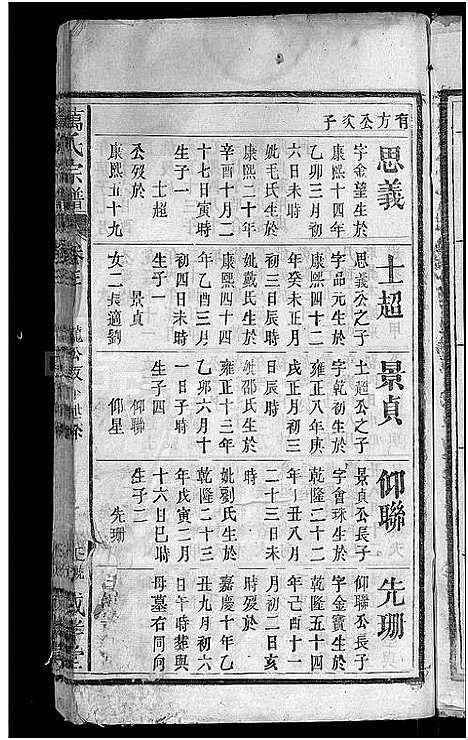 有方公次子
思義
字金望生於
康熙十四年
乙卯三月初
六日未時
妣毛氏生於
康熙二十年
辛酉十月二
十七日寅時
生子一
士超
公歿於
康熙五十九
士超
思義公之子
字品元生於
康熙四十二
年癸未正月
初三日辰時
妣戴氏生於
康熙四十四
年乙酉三月
初四日未時
生子一
景貞
女二長適劉
景貞
士超公之子
字乾初生於
雍正八年庚
戌正月初三
日辰時
妣邵氏生於
雍正十三年
乙卯六月十
一日子時
生子四
仰聯
仰星
仰聯
景貞公長子
字會珠生於
乾隆二十二
年丑八月
二十三日未
時
妣劉氏生於
乾隆二十三
年戊寅二月
十六日巳時
生子二
先珊
先珊
仰聯公長子
字金寶生於
乾隆五十四
年己酉十一
月初二日亥
時歿於
嘉慶十年乙
丑九月初六
日午時葬與
母墓右同向
萬氏宗譜